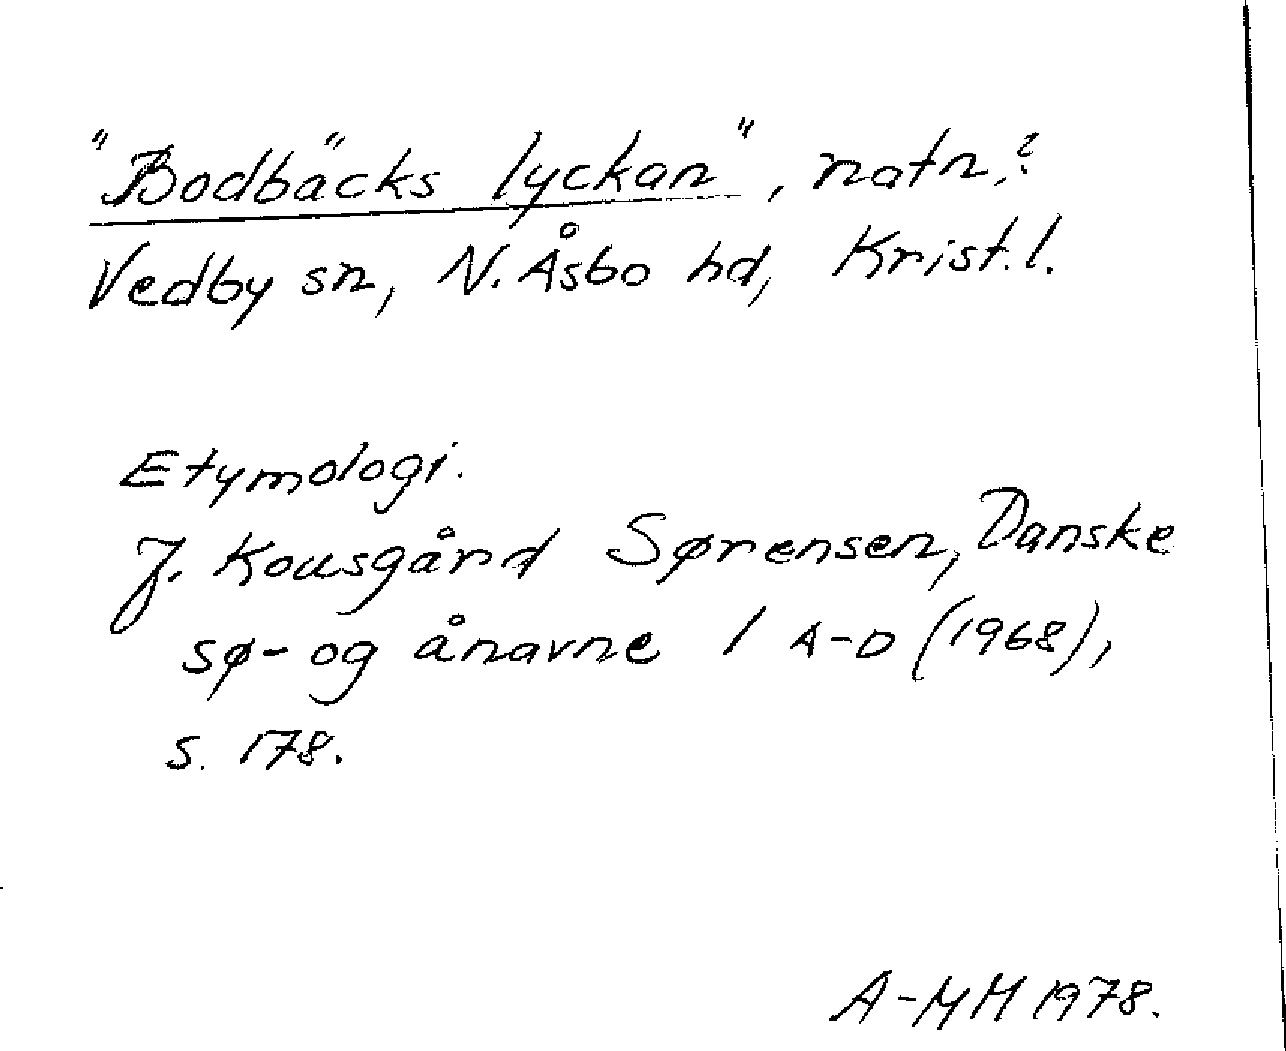 "Bodbäcks lyckan", natn.?
Vedby sn, N. Åsbo hd, Krist. l.
Etymologi.
J. Kousgård Sørensen, Danske
sø- og ånavne 1 A-D (1968),
s. 178.
A-MM 1978.